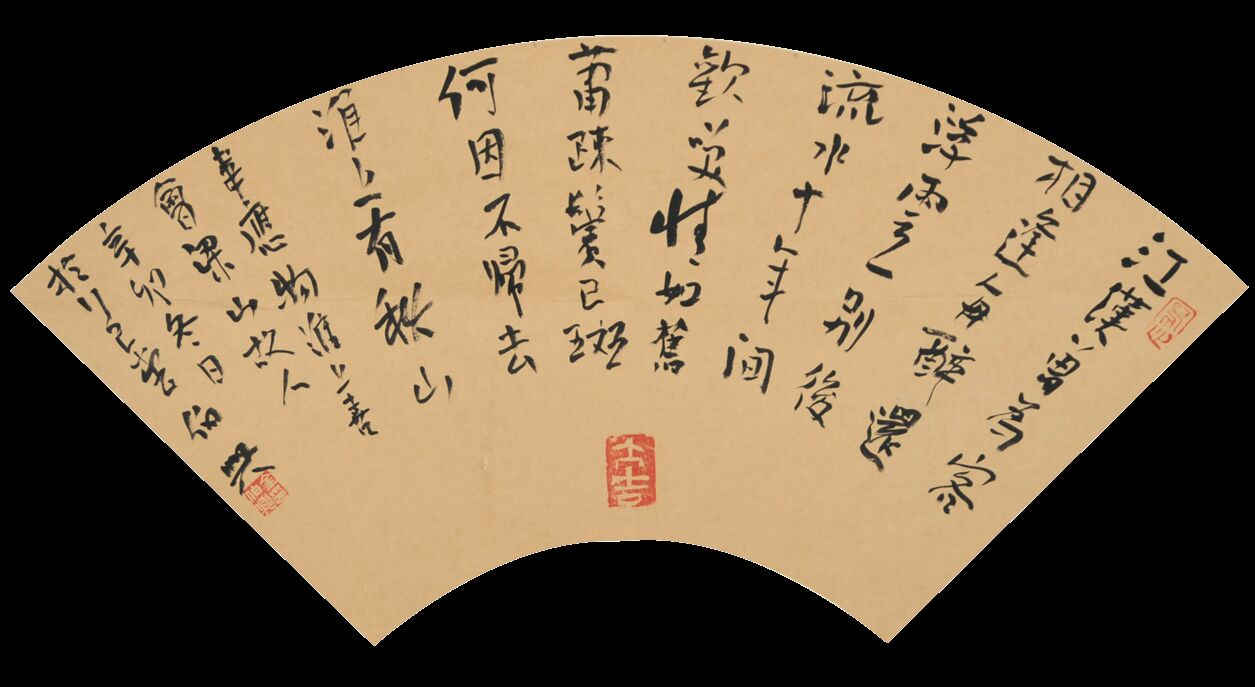 江漢曾為客
相逢每醉還
浮雲一別後
流水十年間
歡笑情如舊
蕭疎鬢已斑
何因不歸去
淮上有秋山
韋應物淮上喜
會梁山故人
辛卯冬日
於行己堂伯
大吉